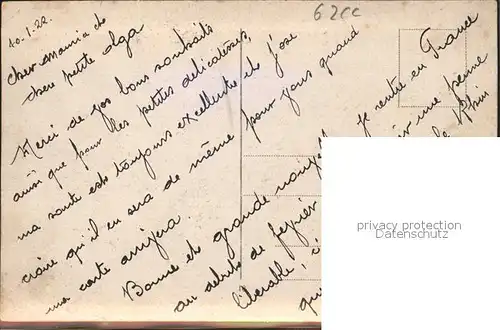 62cc
10-1-22.
Cher Mania et
chere petite Olga
Merci de vos bons souhaits
ainsi que pour les petites delicatesses,
ma santé est toujours excellente et j'ose
croire qu'il en sera de même pour vous quand
ma carte arrivera.
Bonne et grande je rentre en France
au debut de fevrier une
liberable!
privacy protection
Datenschutz